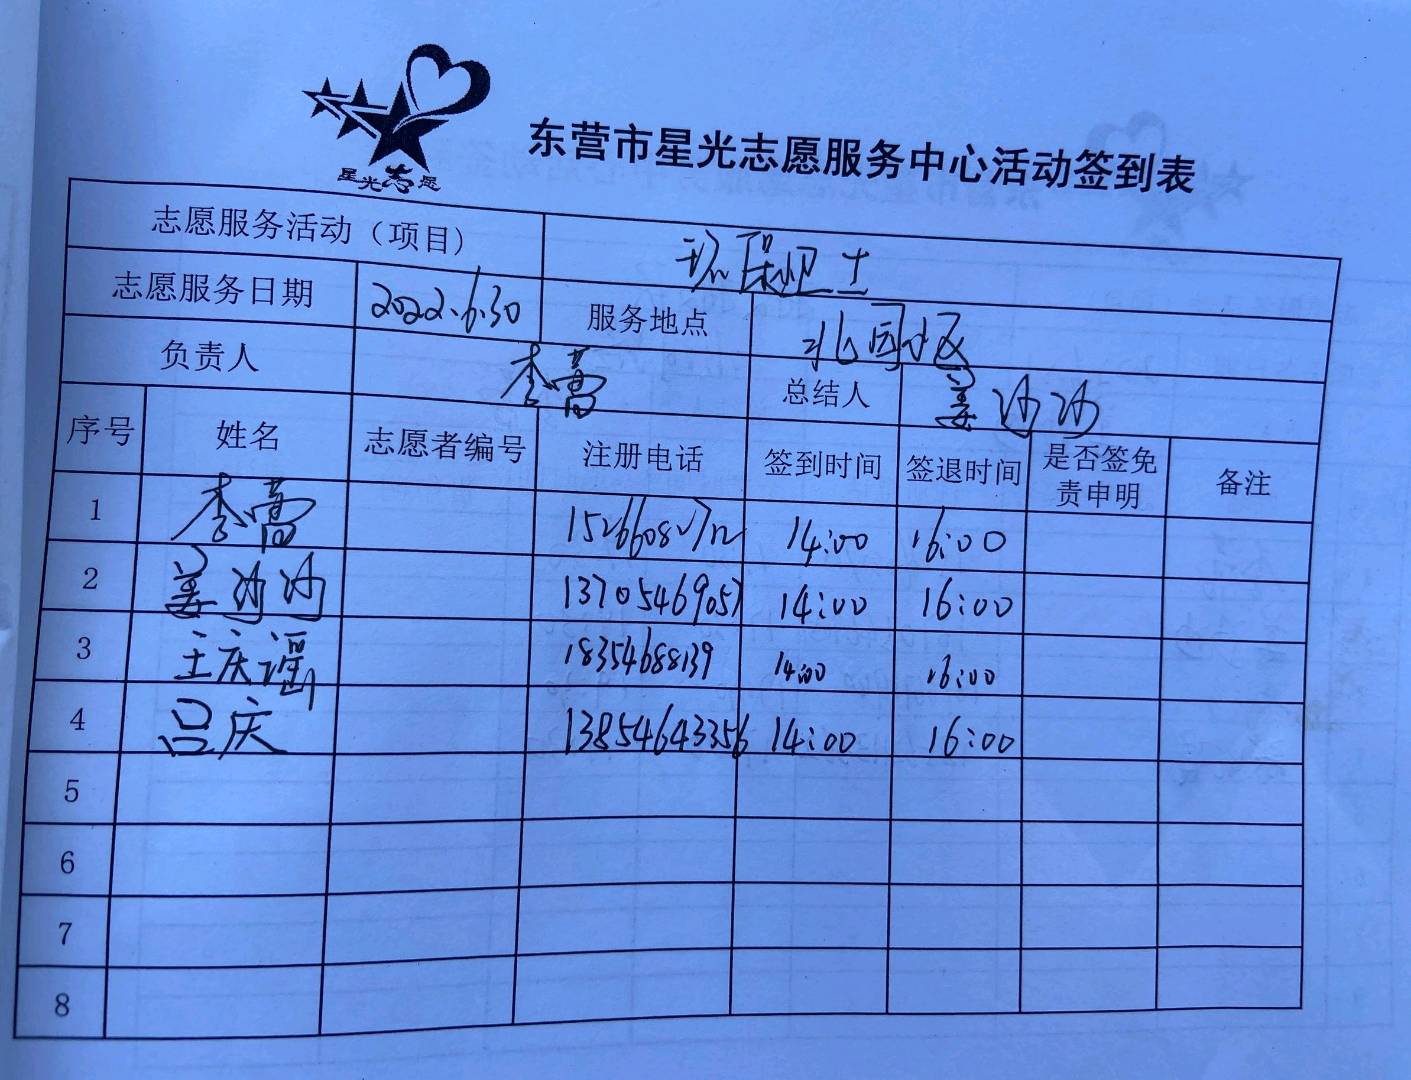 星光志愿
东营市星光志愿服务中心活动签到表
志愿服务活动（项目） 环保卫士
志愿服务日期 2022.6.30 服务地点 北园小区
负责人 李蒿 总结人 姜沙沙
序号 姓名 志愿者编号 注册电话 签到时间 签退时间 是否签免责申明 备注
1 李蒿 14:00 16:00
2 姜沙沙 13705469057 14:00 16:00
3 王庆谣 18354688139 14:00 16:00
4 吕庆 13854643356 14:00 16:00
5
6
7
8